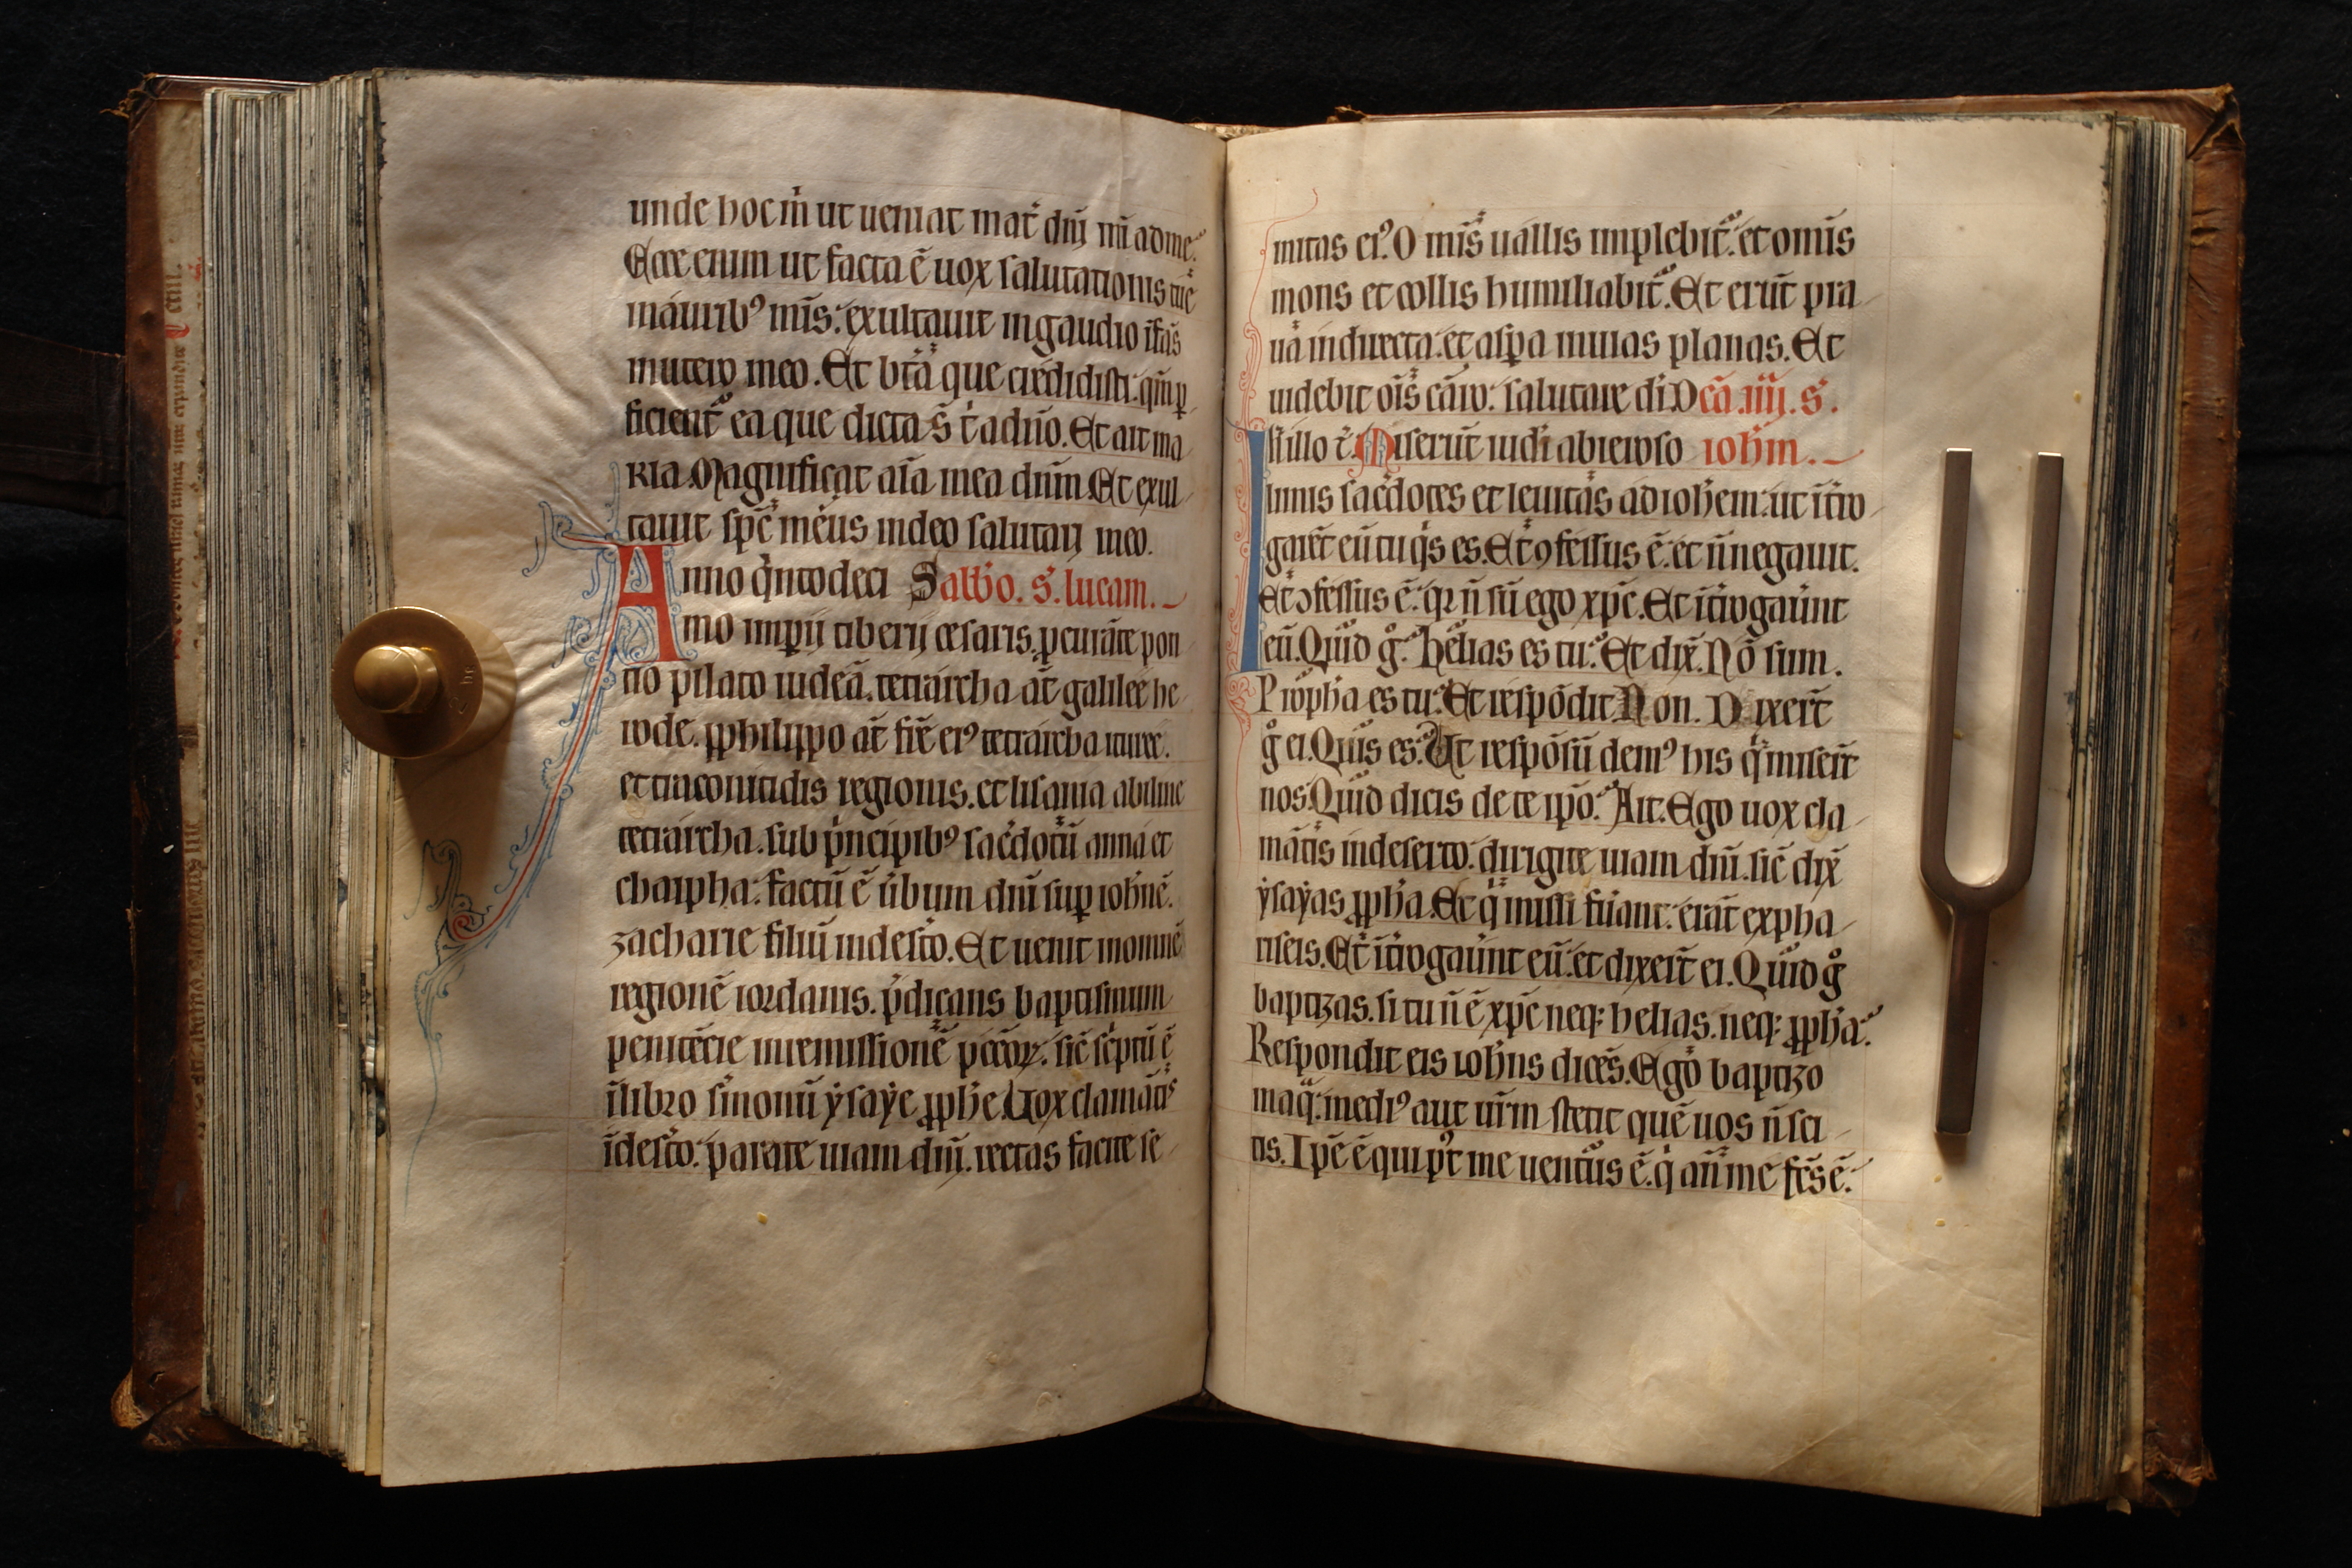 unde hoc m̄ ut ueniat mat̄ dn̄j m̄i ad me.
Ecce enim ut facta ē uox salutationis tuē
in auribꝰ mīs: exultauit in gaudio īfās
in utero meo. Et bt̄a que credidisti: qm̄ ꝑ
ficient̄ ea que dicta s̄ t̄ a dn̄o. Et ait ma
ria. Magnificat aīa mea dn̄m. Et exul
tauit sp̄c meus in deo salutarj meo.
Anno qͥntodeci Sabbo. s. lucam.
mo imꝑii tiberij cesaris. ꝓcurāte pon
tio pilato iudeā. tetrarcha āt galilee he
rode. philippo āt fr̄e eiꝰ tetrarcha ituree.
et traconitidis regionis. et lisania abiline
tetrarcha. sub pͥncipibꝰ sac̄dotū anna et
chaipha: factū ē u̇bum dn̄i suꝑ ioh̄nē.
zacharie filiū in des̄to. Et uenit in omnē
regionē iordanis. p̄dicans baptismum
penitētie in remissionē pc̄cōꝝ. sic̄ sc̄ptū ē
ī libro s̄monū ẏsaẏe ꝓph̄e. Uox clamātis
ī des̄to: parate uiam dn̄j. rectas facite se
mitas eiꝰ. O mīs uallis implebit̄. et omīs
mons et collis humiliabit̄. Et erūt pra
ua in directa: et asꝑa in uias planas. Et
uidebit oīs cāro: salutare di. Dc̄a .iiij. s.
In illo t̄. Miserūt iudi ab ieroso ioh̄m.
limis sac̄dotes et leuitas ad ioh̄em: ut īt̄ro
garēt eū tu qͥs es. Et ꝯfessus ē: et n̄ negauit.
Et ꝯfessus ē: qꝛ n̄ sū ego xp̄c. Et īt̄rogaūnt
eū. Quid gͦ. Helias es tu. Et dix̄. Nō sum.
Proph̄a es tu. Et respōdit. Non. Dixer̄t
gͦ ei. Quis es. Ut respōsū demꝰ his qͥ miser̄t
nos. Quid dicis de te ip̄o. Ait. Ego uox cla
mātis in deserto. dirigite uiam dn̄i. sic̄ dix̄
ẏsaẏas ꝓph̄a. Et qͥ missi fu̇ant: erāt ex pha
riseis. Et īt̄rogaūnt eū: et dixer̄t ei. Quid gͦ
baptizas. si tu n̄ ē xp̄c neqꝫ helias. neqꝫ ꝓph̄a.
Respondit eis ioh̄ns dicēs. Ego baptizo
in aq̄: mediꝰ aut̄ ur̄m stetit quē uos n̄ sci
tis. Ip̄e ē qui pͦt me uentūs ē. qͥ an̄ me fc̄s ē: